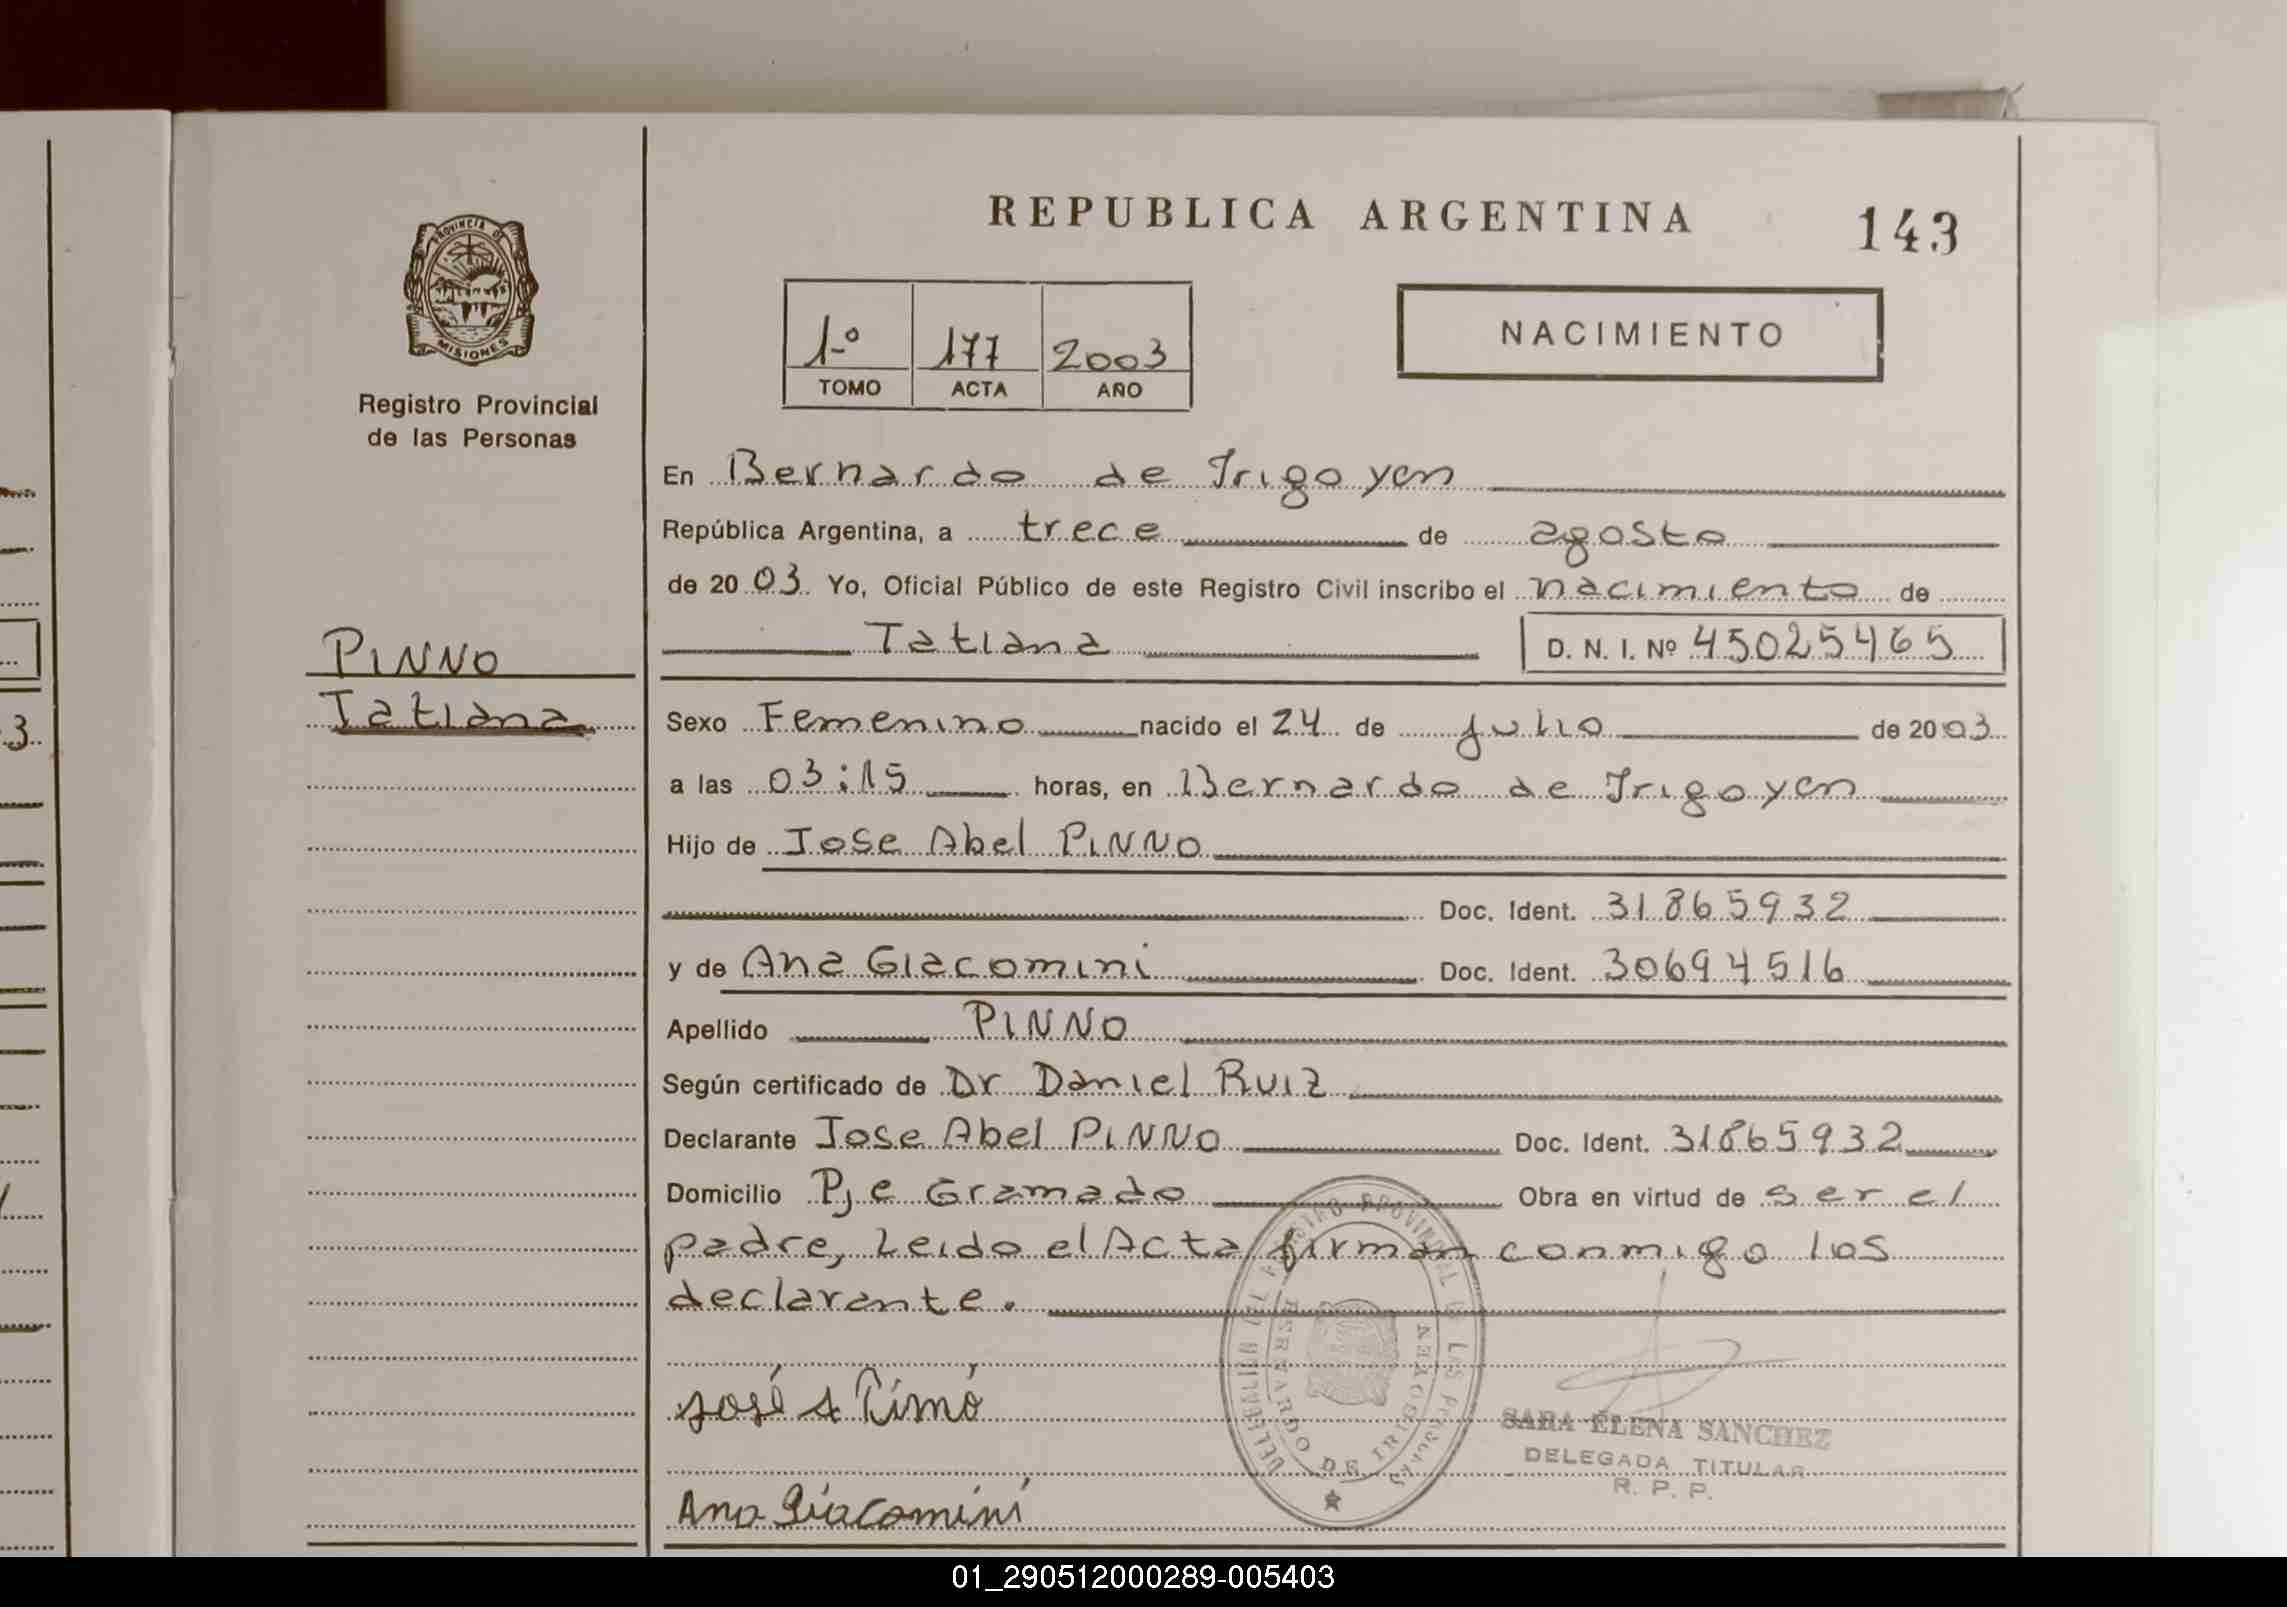 REPUBLICA ARGENTINA
143
PROVINCIA DE
MISIONES
Registro Provincial
de las Personas
1º
177
2003
TOMO
ACTA
AÑO
NACIMIENTO
En Bernardo de Irigoyen
República Argentina, a trece de agosto
de 2003 Yo, Oficial Público de este Registro Civil inscribo el nacimiento de
Tatiana D. N. I. Nº 45025465
PINNO
Tatiana
Sexo Femenino nacido el 24 de julio de 2003
a las 03:15 horas, en Bernardo de Irigoyen
Hijo de Jose Abel PINNO
Doc. Ident. 31865932
y de Ana Giacomini Doc. Ident. 30694516
Apellido PINNO
Según certificado de Dr Daniel Ruiz
Declarante Jose Abel PINNO Doc. Ident. 31865932
Domicilio Pje Gramado Obra en virtud de ser el
padre, Leido el Acta firman conmigo los
declarante.
José A Pinnó
Ana Giacomini
DELEGACION DEL REGISTRO PROVINCIAL DE LAS PERSONAS
BERNARDO DE IRIGOYEN
SARA ELENA SANCHEZ
DELEGADA TITULAR
R. P. P.
3
01_290512000289-005403